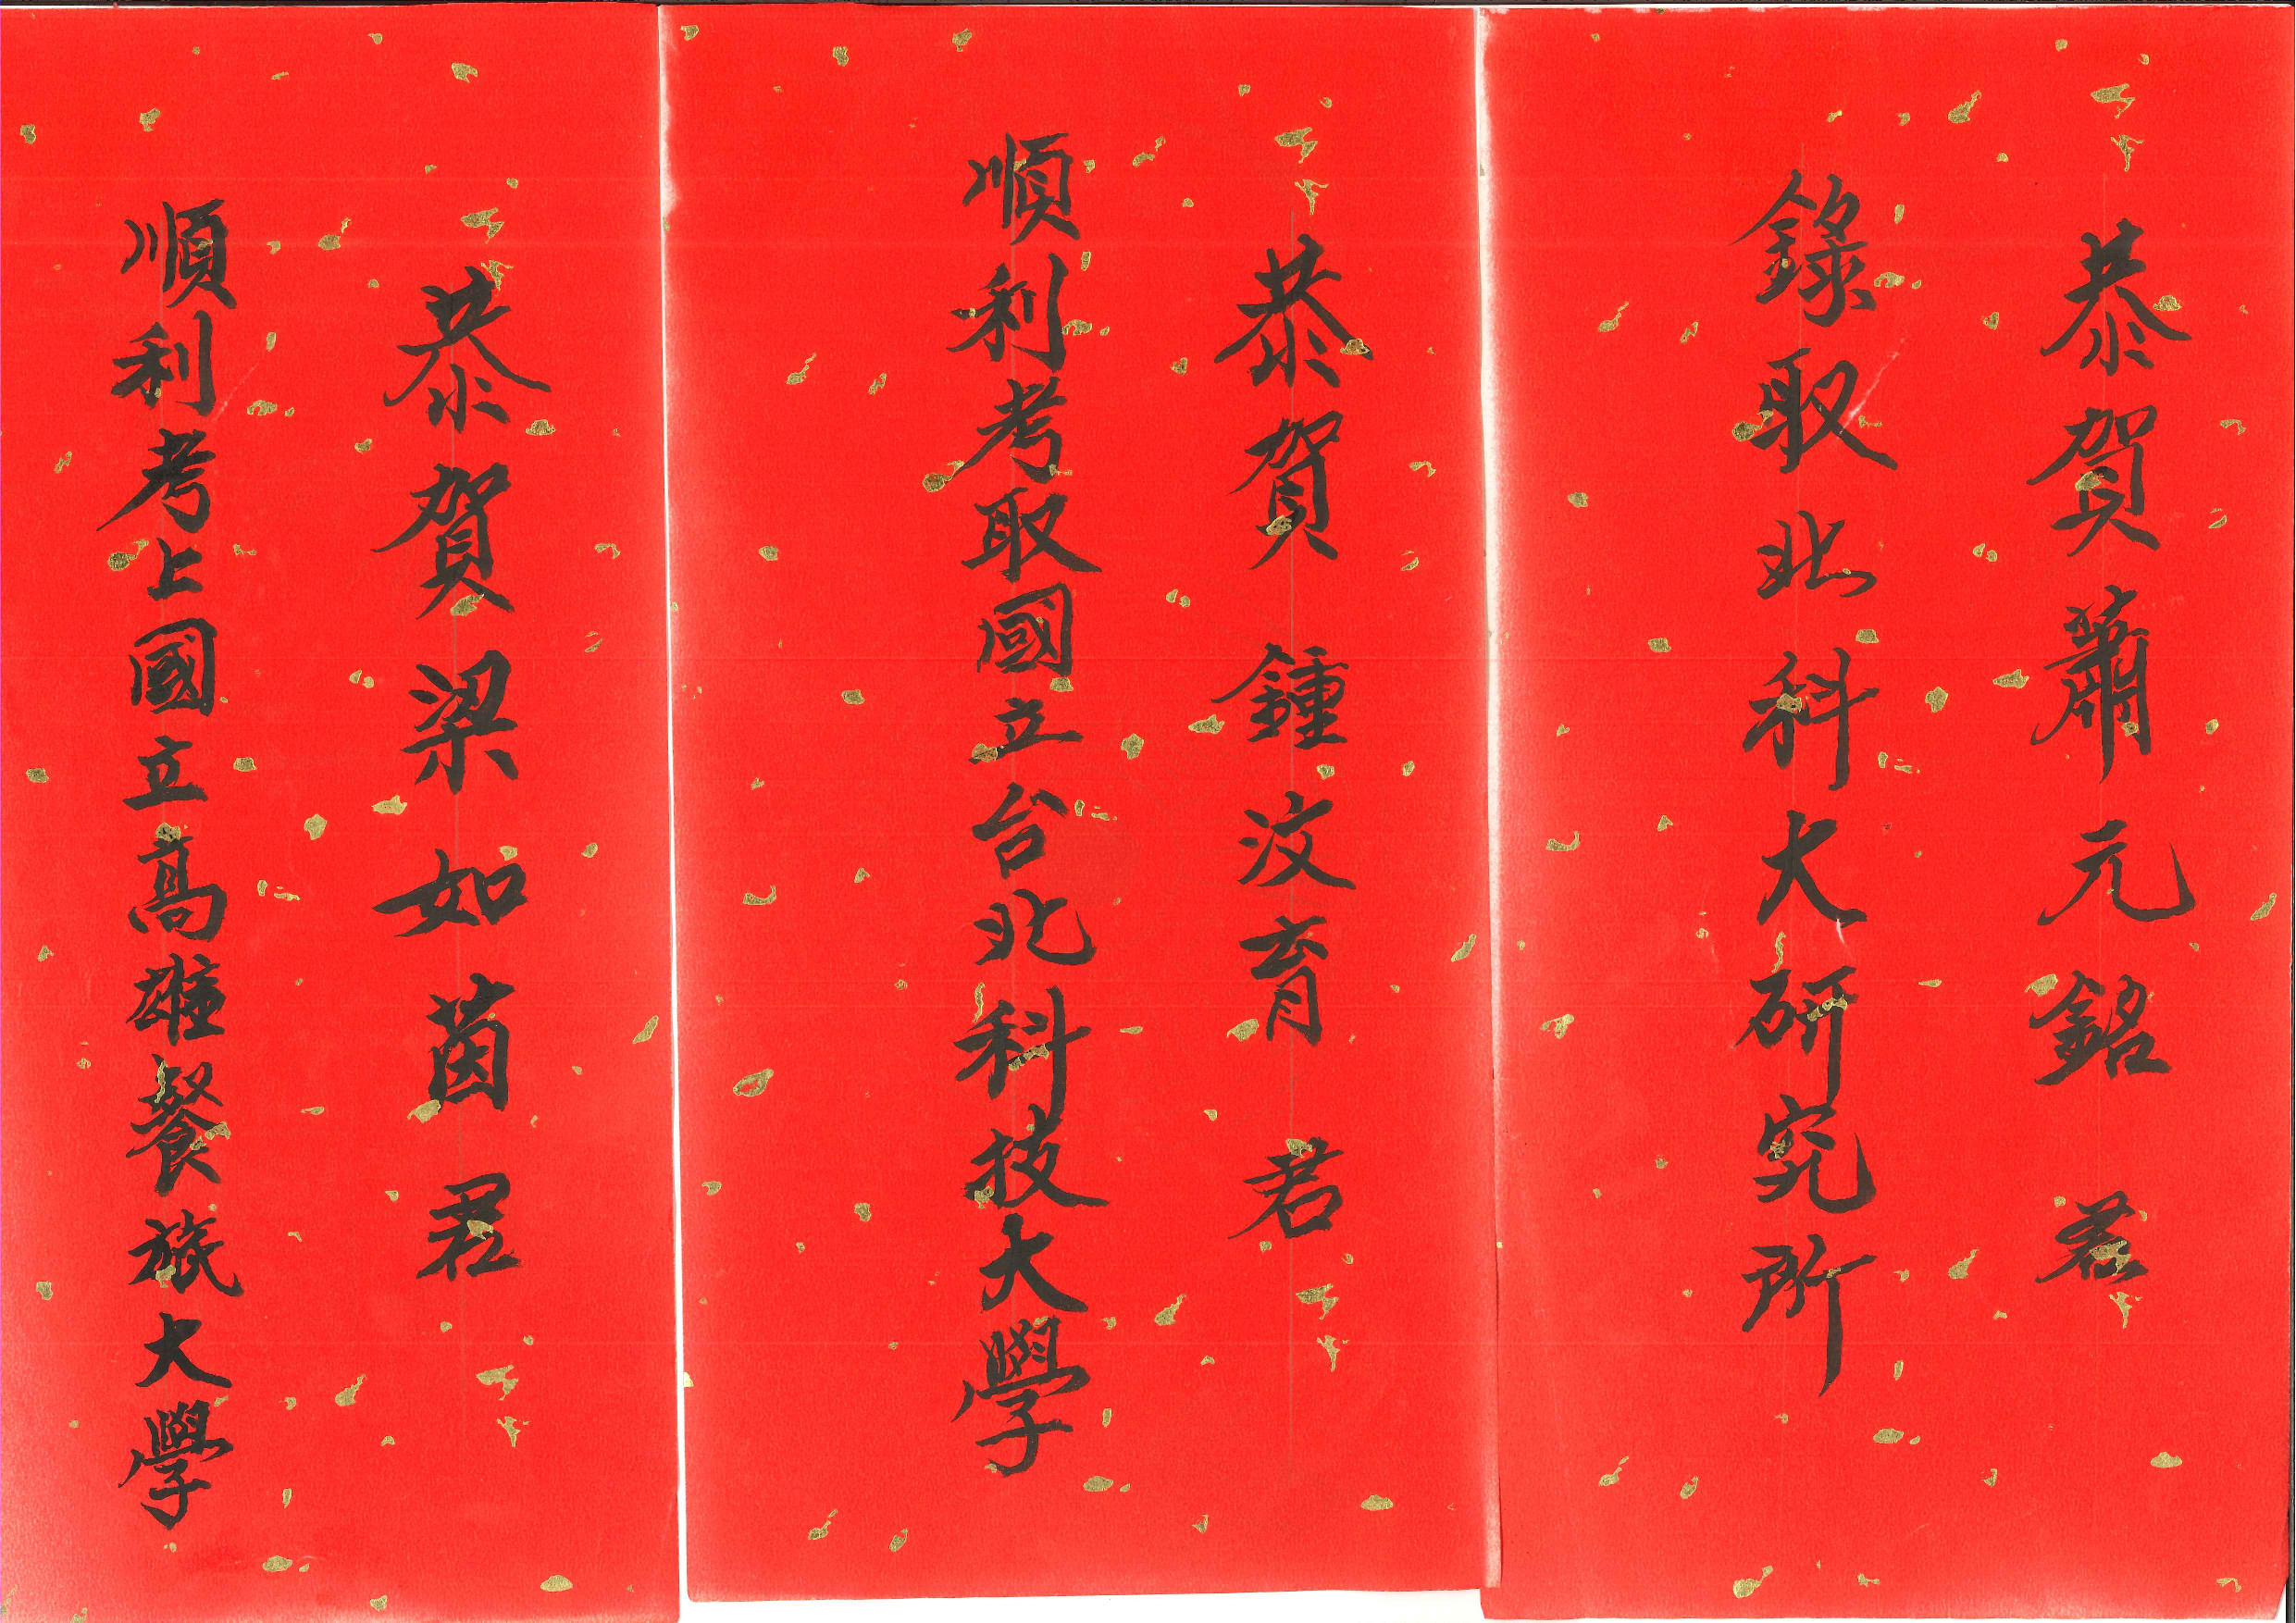 恭賀蕭元銘君
錄取北科大研究所
恭賀 鍾汶育 君
順利考取國立台北科技大學
恭賀梁如茵君
順利考上國立高雄餐旅大學